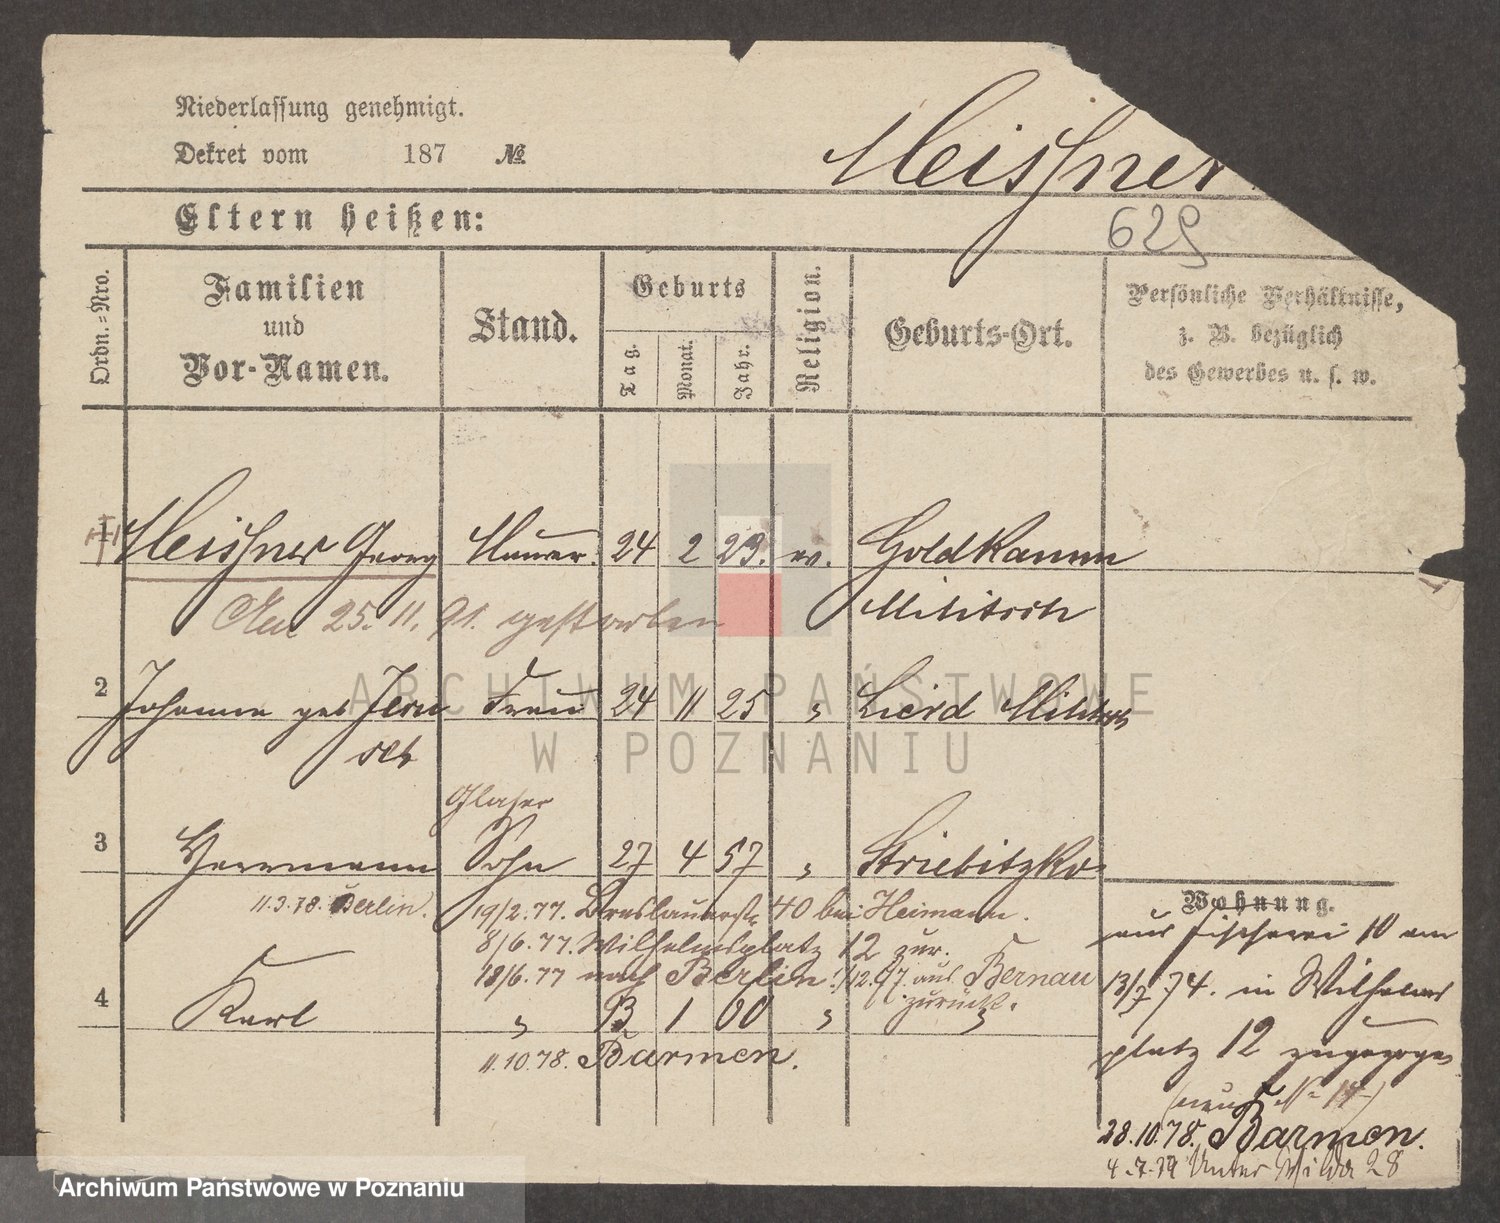 Niederlassung genehmigt.
Dekret vom 187 №
Meissner
Eltern heißen:
629
Ordn.=Nro.
Familien
und
Vor-Namen.
Stand.
Geburts
Tag.
Monat.
Jahr.
Religion.
Geburts-Ort.
Persönliche Verhältnisse,
z. B. bezüglich
des Gewerbes u. s. w.
1 Meissner Georg Maurer. 24 2 23. ev. Goldkamm
Militsch
Am 25.11.91. gestorben
2 Johanna geb Frau 24 11 25 " Militsch
Glaser
3 Herrmann Sohn 27 4 57 " Striebitzko
11.3.78. Berlin.
19/2.77. Breslauerstr 40 bei Heimann.
8/6.77. Wilhelmsplatz 12 zur.
18/6.77 nach Berlin. aus Bernau
zurück.
4 Karl " 13 1 60 " "
11.10.78. Barmen.
Wohnung.
aus Fischerei 10 am
13/7 74. in Wilhelms
platz 12 zugezogen
28.10.78. Barmen.
4.7.79 Unter Wilda 28
ARCHIWUM PAŃSTWOWE
W POZNANIU
Archiwum Państwowe w Poznaniu